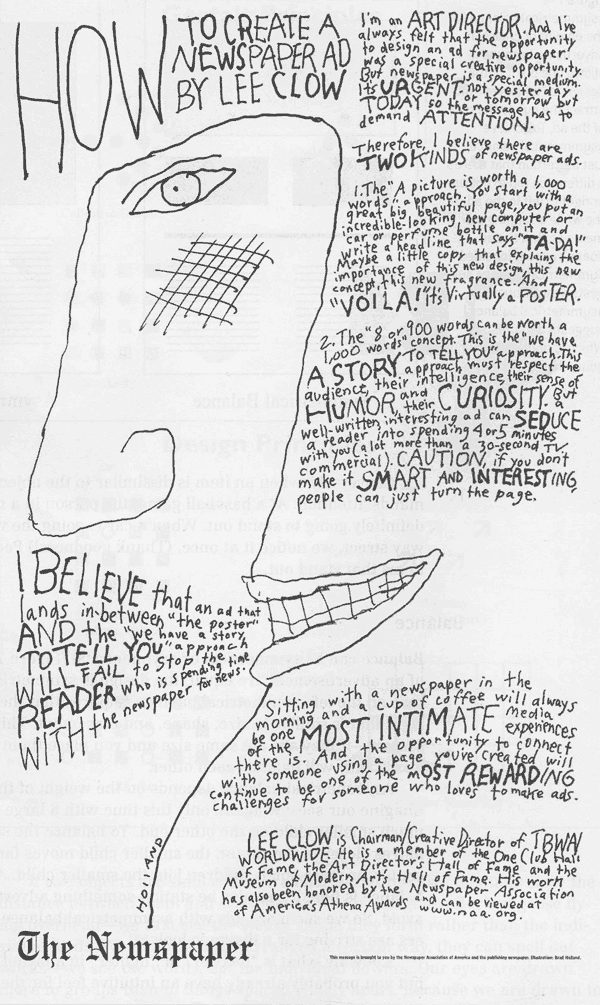 HOW
TO CREATE A
NEWSPAPER AD
BY LEE CLOW
I'm an ART DIRECTOR. And I've
always felt that the opportunity
to design an ad for newspaper
was a special creative opportunity.
But newspaper is a special medium.
Its URGENT. not yesterday
or tomorrow but
TODAY so the message has to
demand ATTENTION.
Therefore, I believe there are
TWO KINDS of newspaper ads.
1. The "A picture is worth a 1,000
words" approach. You start with a
great big, beautiful page, you put an
incredible-looking new computer or
car or perfume bottle on it and
write a headline that says "TA-DA!"
Maybe a little copy that explains the
importance of this new design, this new
concept, this new fragrance. And
"VOILA!" It's virtually a POSTER.
2. The "8 or 900 words can be worth a
1,000 words" concept. This is the "we have
A STORY TO TELL YOU" approach. This
approach must respect the
audience, their intelligence, their sense of
HUMOR and their CURIOSITY. But a
well-written, interesting ad can SEDUCE
a reader into spending 4 or 5 minutes
with you (a lot more than a 30-second TV
commercial). CAUTION, if you don't
make it SMART AND INTERESTING,
people can just turn the page.
I BELIEVE that an ad that
lands in-between "the poster"
AND the "we have a story
TO TELL YOU" approach
WILL FAIL to stop the
READER who is spending time
WITH the newspaper for news.
Sitting with a newspaper in the
morning and a cup of coffee will always
be one of the MOST INTIMATE media experiences
there is. And the opportunity to connect
with someone using a page you've created will
continue to be one of the most REWARDING
challenges for someone who loves to make ads.
LEE CLOW is Chairman/Creative Director of TBWA/
WORLDWIDE. He is a member of the One Club Hall
of Fame, the Art Director's Hall of Fame and the
Museum of Modern Art's Hall of Fame. His work
has also been honored by the Newspaper Association
of America's Athena Awards and can be viewed at
www.naa.org.
The Newspaper
This message is brought to you by the Newspaper Association of America and the publishing newspaper. Illustration: Brad Holland.